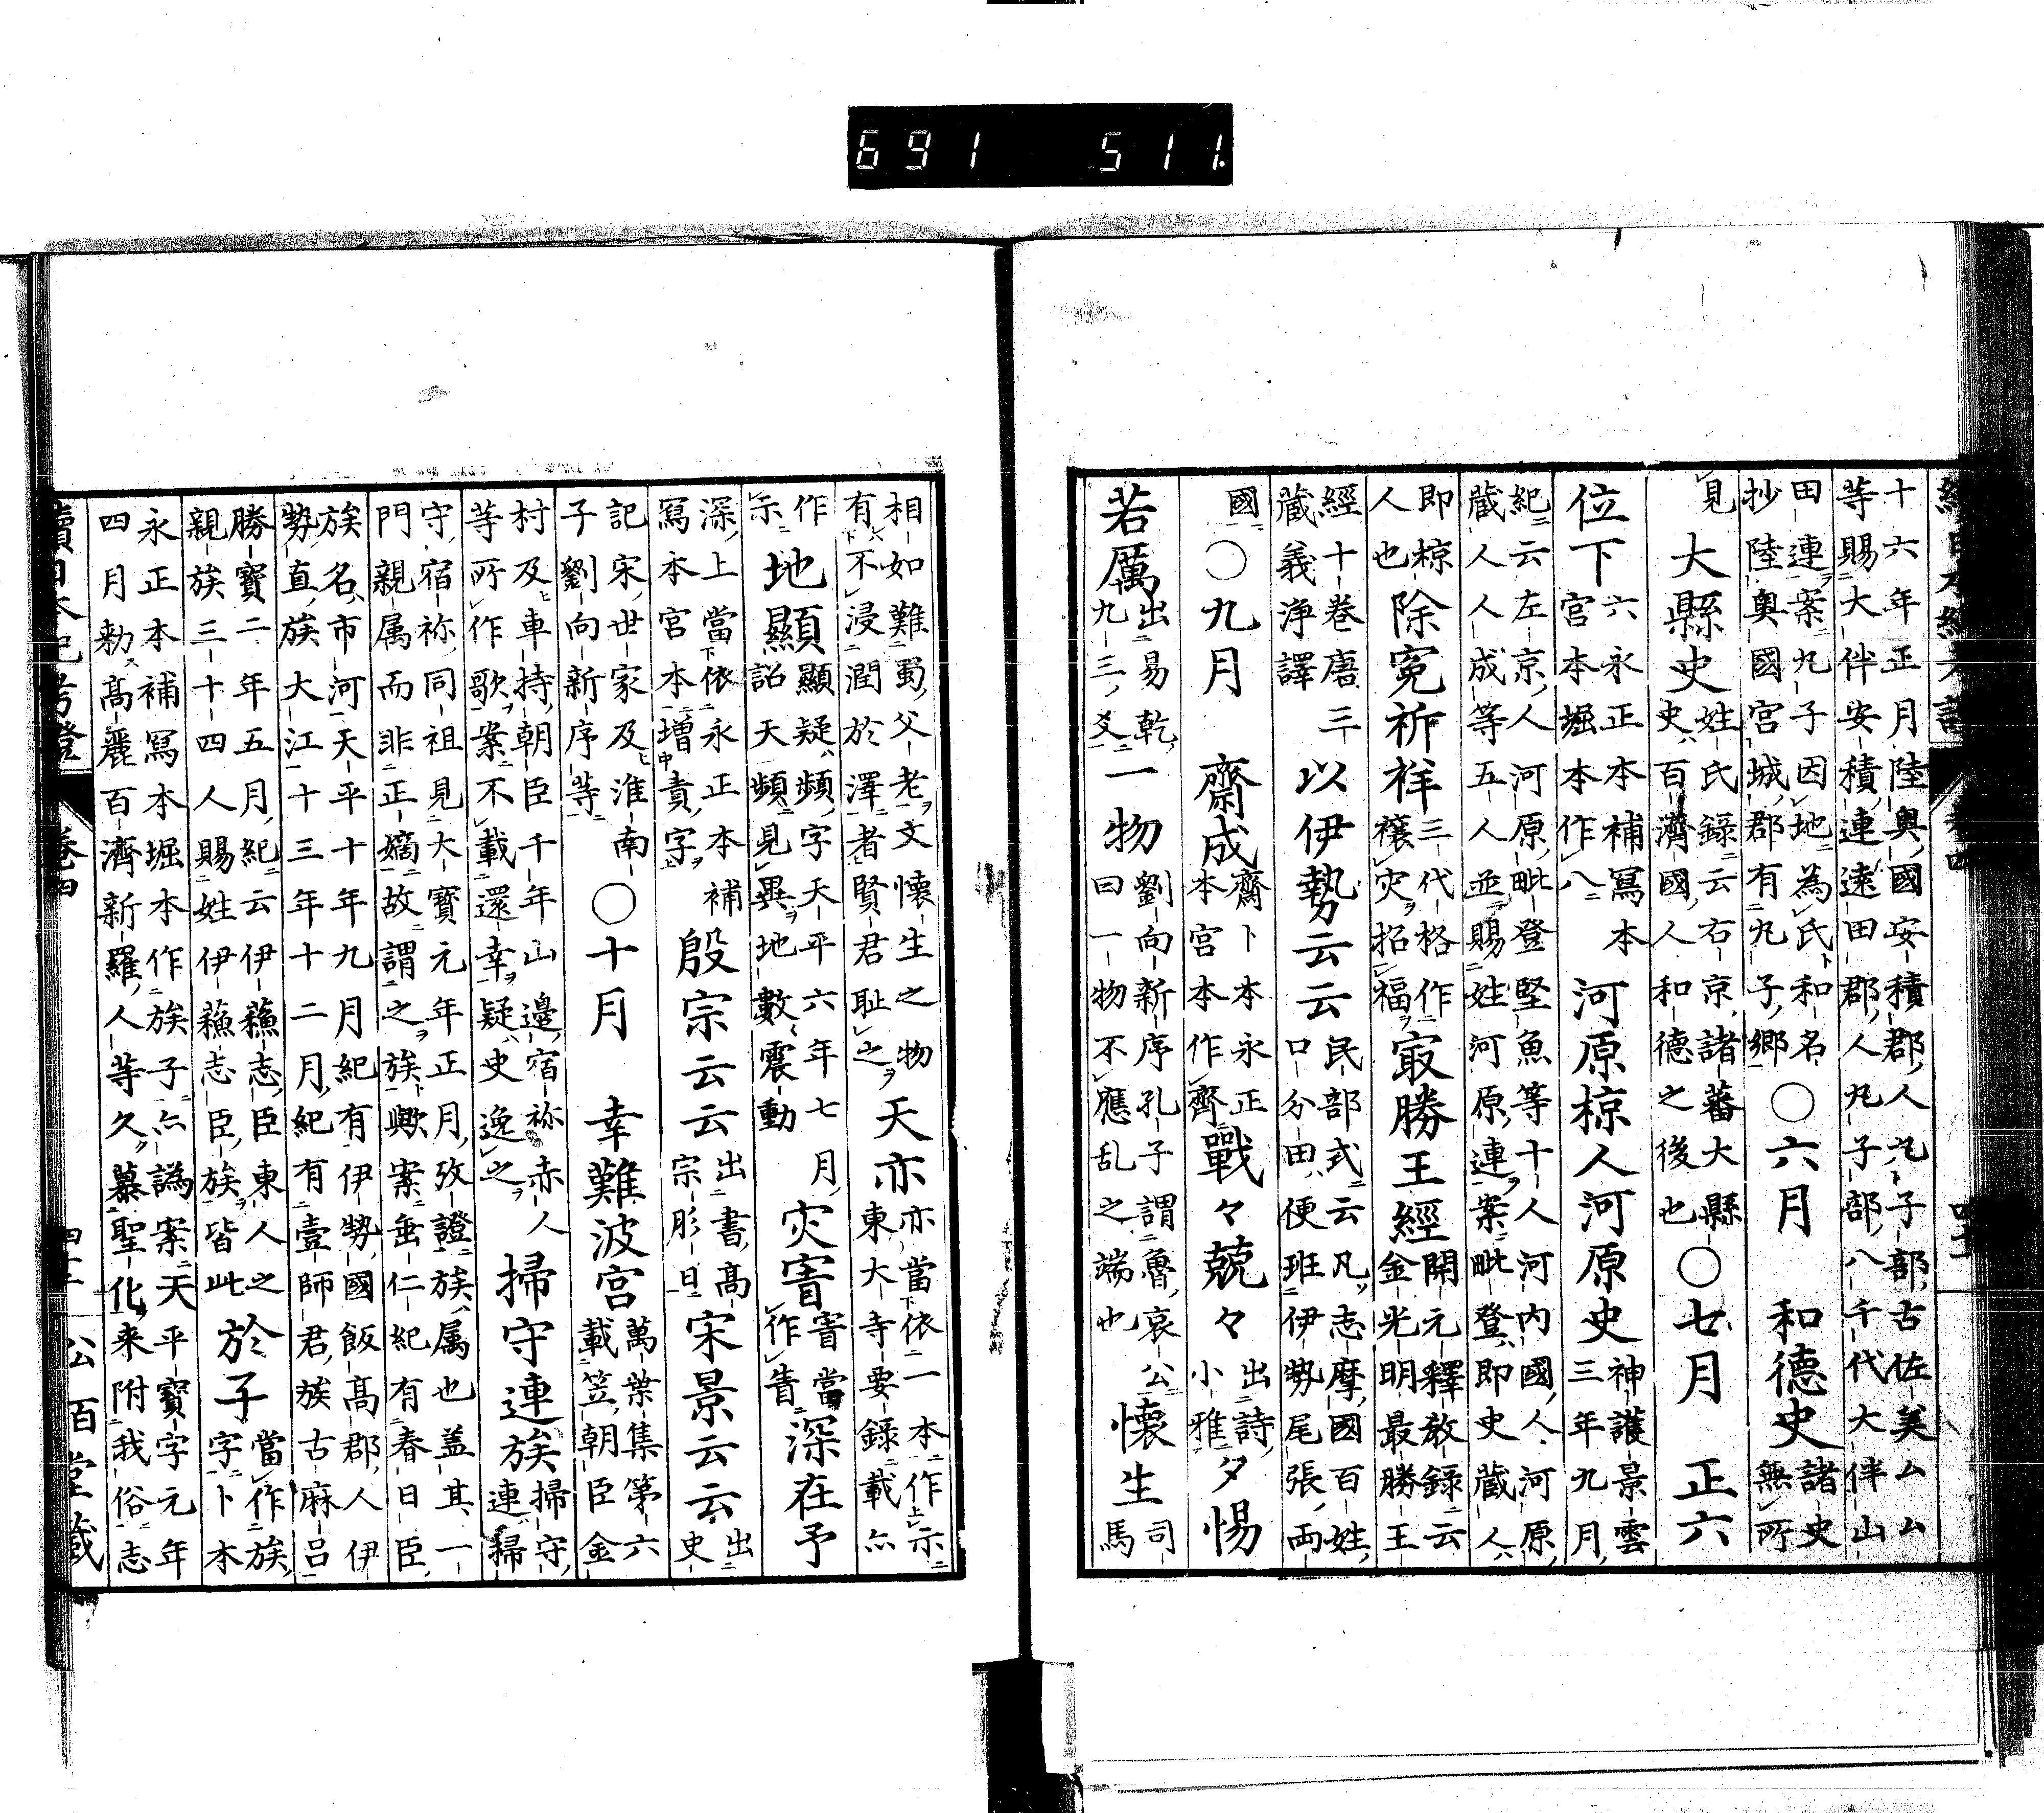 691 511.
十六年正月陸奥國安積郡人丸子部古佐美ムム
等賜大伴安積連遠田郡人丸子部八千代大伴山
田連案丸子因地為氏和名
抄陸奥國宮城郡有丸子郷
○六月 和德史
諸史
無所
見
大縣史
姓氏録云右京諸蕃大縣
史百濟國人和德之後也
○七月 正六
位下
六永正本補寫本
宮本堀本作八
河原椋人河原史
神護景雲
三年九月
紀云左京人河原毗登堅魚等十人河内國人河原
蔵人人成等五人並賜姓河原連案毗登即史蔵人
即椋
人也
除寃祈祥
三代格作
禳灾招福
㝡勝王經
開元釋敎録云
金光明最勝王
經十卷唐三
蔵義淨譯
以伊勢云云
民部式云凡志摩國百姓
口分田便班伊勢尾張両
國
○九月 齋成
齋卜本永正
本宮本作齊
戰々兢々
出詩
小雅
夕惕
若厲
出易乾
九三爻
一物
劉向新序孔子謂魯哀公
曰一物不應乱之端也
懐生
司
馬
相如難蜀父老文懐生之物
有不浸潤於澤者賢君耻之
天亦
亦當依一本作示
東大寺要録載亦
作
示
地顯
顯疑頻字天平六年七月
詔天頻見異地數震動
灾害
害當
作眚
深在予
深上當依永正本補
寫本宮本増責字
殷宗云云
出書高
宗肜日
宋景云云
出
史
記宋世家及淮南
子劉向新序等
○十月 幸難波宮
萬葉集第六
載笠朝臣金
村及車持朝臣千年山邊宿祢赤人
等所作歌案不載還幸疑史逸之
掃守連族
掃守
連掃
守宿祢同祖見大寶元年正月攷證族属也盖其一
門親属而非正嫡故謂之族歟案垂仁紀有春日臣
族名市河天平十年九月紀有伊勢國飯髙郡人伊
勢直族大江十三年十二月紀有壹師君族古麻呂
勝寶二年五月紀云伊蘓志臣東人之
親族三十四人賜姓伊蘓志臣族皆此
於子
當作族
字卜本
永正本補寫本堀本作族子亦譌案天平寳字元年
四月勅髙麗百濟新羅人等久慕聖化来附我俗志
續日本紀考證 巻四 四十三 公百堂藏